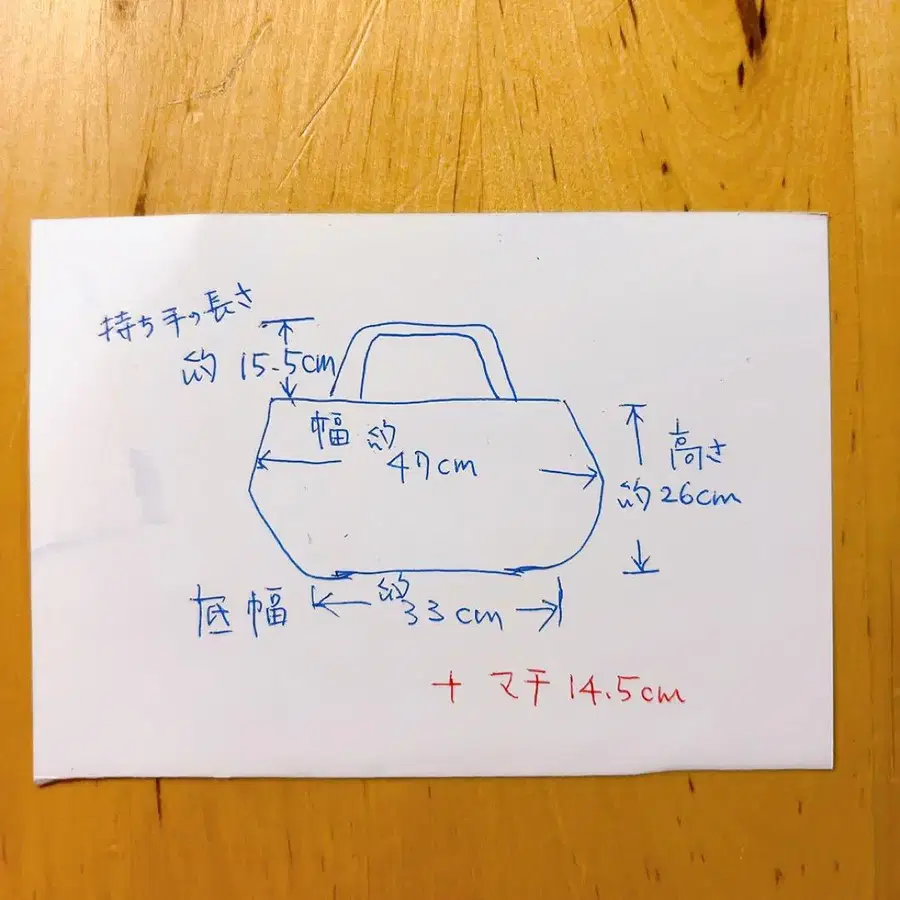 持ち手の長さ
約 15.5cm
幅 約
47cm
高さ
約26cm
底幅 約
33cm
+ マチ 14.5cm